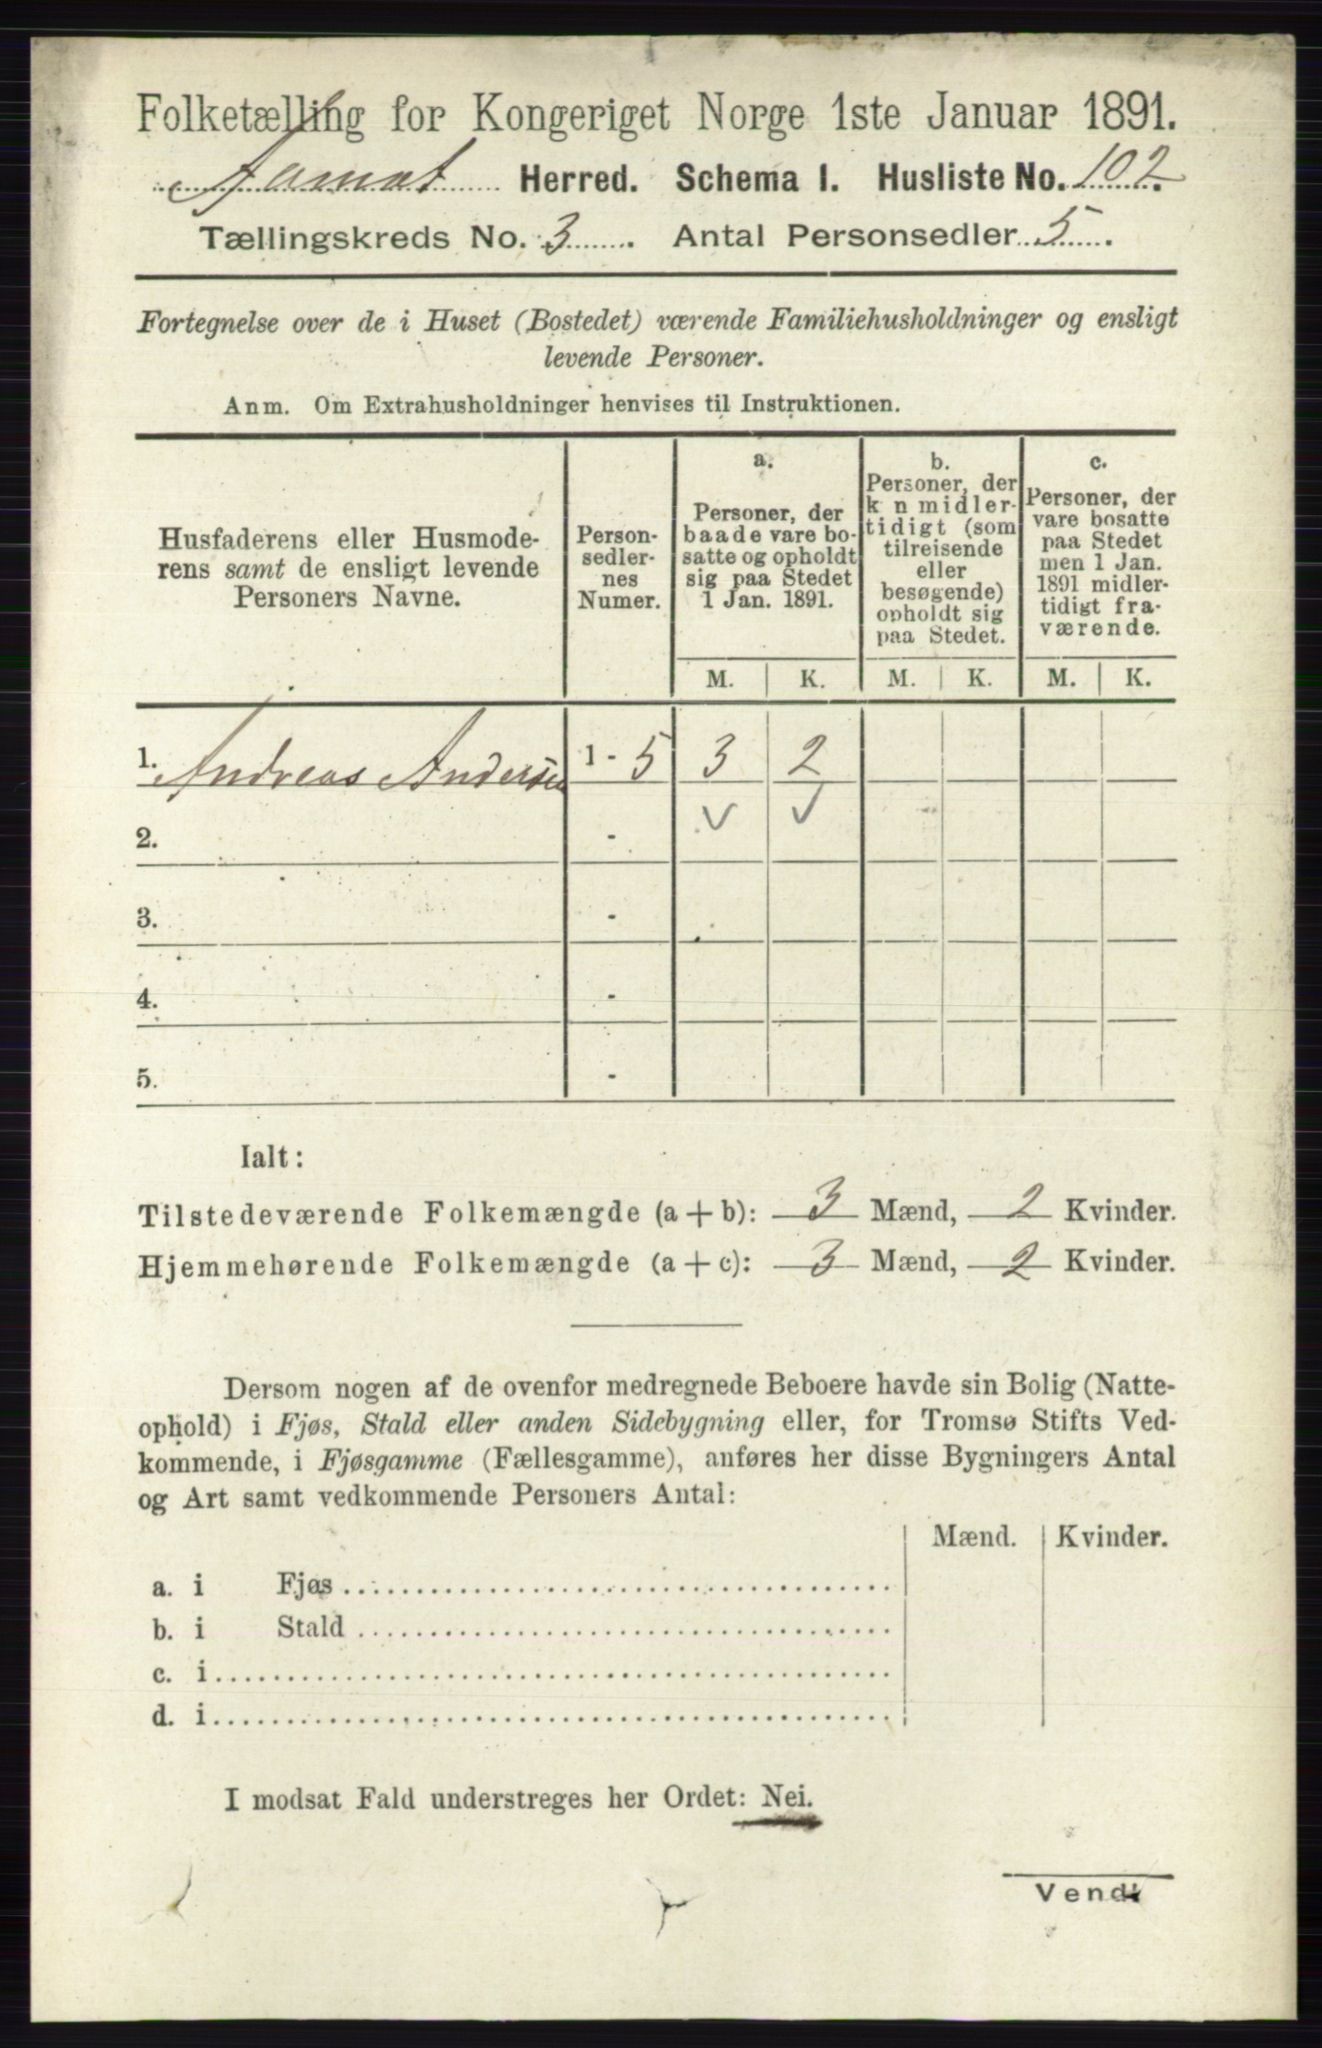 Folketælling for Kongeriget Norge 1ste Januar 1891.
Aamot Herred. Schema I. Husliste No. 102.
Tællingskreds No. 3. Antal Personsedler 5.
Fortegnelse over de i Huset (Bostedet) værende Familiehusholdninger og ensligt
levende Personer.
Anm. Om Extrahusholdninger henvises til Instruktionen.
Husfaderens eller Husmode-
rens samt de ensligt levende
Personers Navne.
Person-
sedler-
nes
Numer.
a.
Personer, der
baade vare bo-
satte og opholdt
sig paa Stedet
1 Jan. 1891.
b.
Personer, der
k n midler-
tidigt (som
tilreisende
eller
besøgende)
opholdt sig
paa Stedet.
c.
Personer, der
vare bosatte
paa Stedet
men 1 Jan.
1891 midler-
tidigt fra-
værende.
M. K. M. K. M. K.
1. Andreas Andersen 1 - 5 3 2
2. -
3. -
4. -
5. -
Ialt:
Tilstedeværende Folkemængde (a + b): 3 Mænd, 2 Kvinder.
Hjemmehørende Folkemængde (a + c): 3 Mænd, 2 Kvinder.
Dersom nogen af de ovenfor medregnede Beboere havde sin Bolig (Natte-
ophold) i Fjøs, Stald eller anden Sidebygning eller, for Tromsø Stifts Ved-
kommende, i Fjøsgamme (Fællesgamme), anføres her disse Bygningers Antal
og Art samt vedkommende Personers Antal:
Mænd. Kvinder.
a. i Fjøs
b. i Stald
c. i
d. i
I modsat Fald understreges her Ordet: Nei.
Vend!